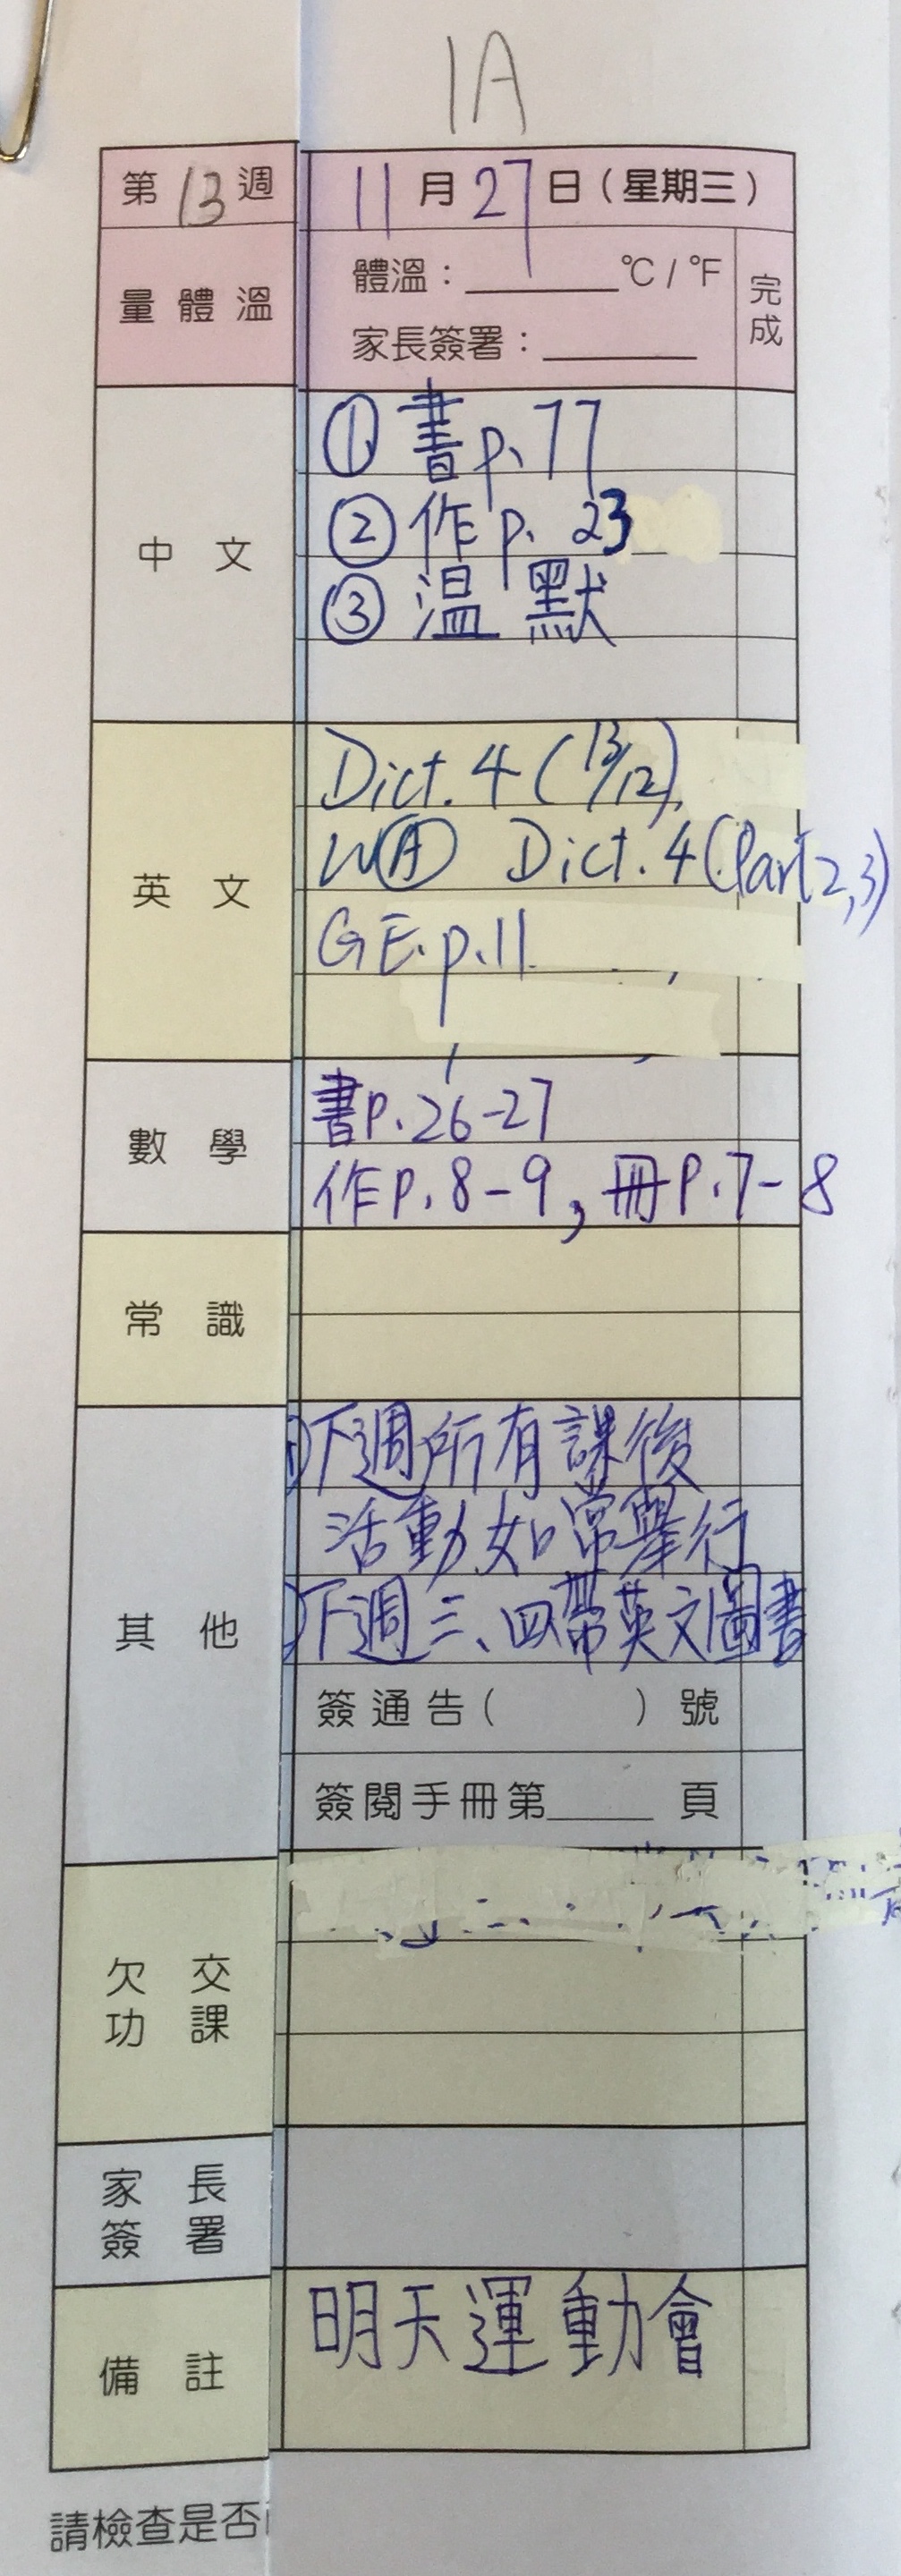 1A
第13週 11月27日（星期三）
量體溫 體溫：______°C / °F 完成
家長簽署：______
中文
① 書p.77
② 作p.23
③ 温默
英文
Dict. 4 (13/12)
W(A) Dict. 4 (Part 2,3)
GE. p.11
數學
書p.26-27
作p.8-9, 冊p.7-8
常識
其他
下週所有課後
活動如常舉行
下週三、四帶英文圖書
簽通告（ ）號
簽閱手冊第_____頁
欠交功課
家長簽署
備註
明天運動會
請檢查是否